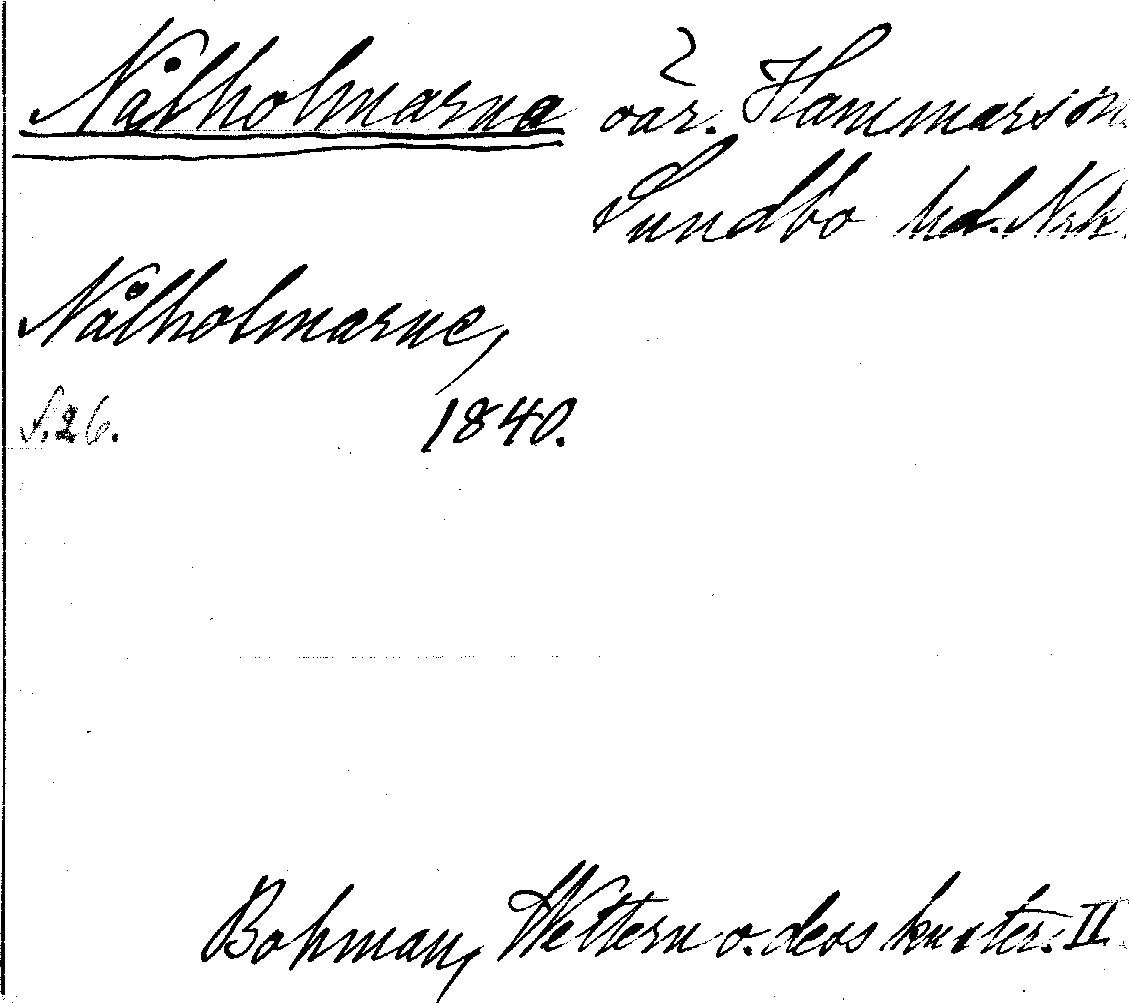 Nålholmarna öar. Hammars sn.
Sundbo hd. Nrk.
Nålholmarne,
S. 26. 1840.
Bohman, Wettern o. dess kuster. II.